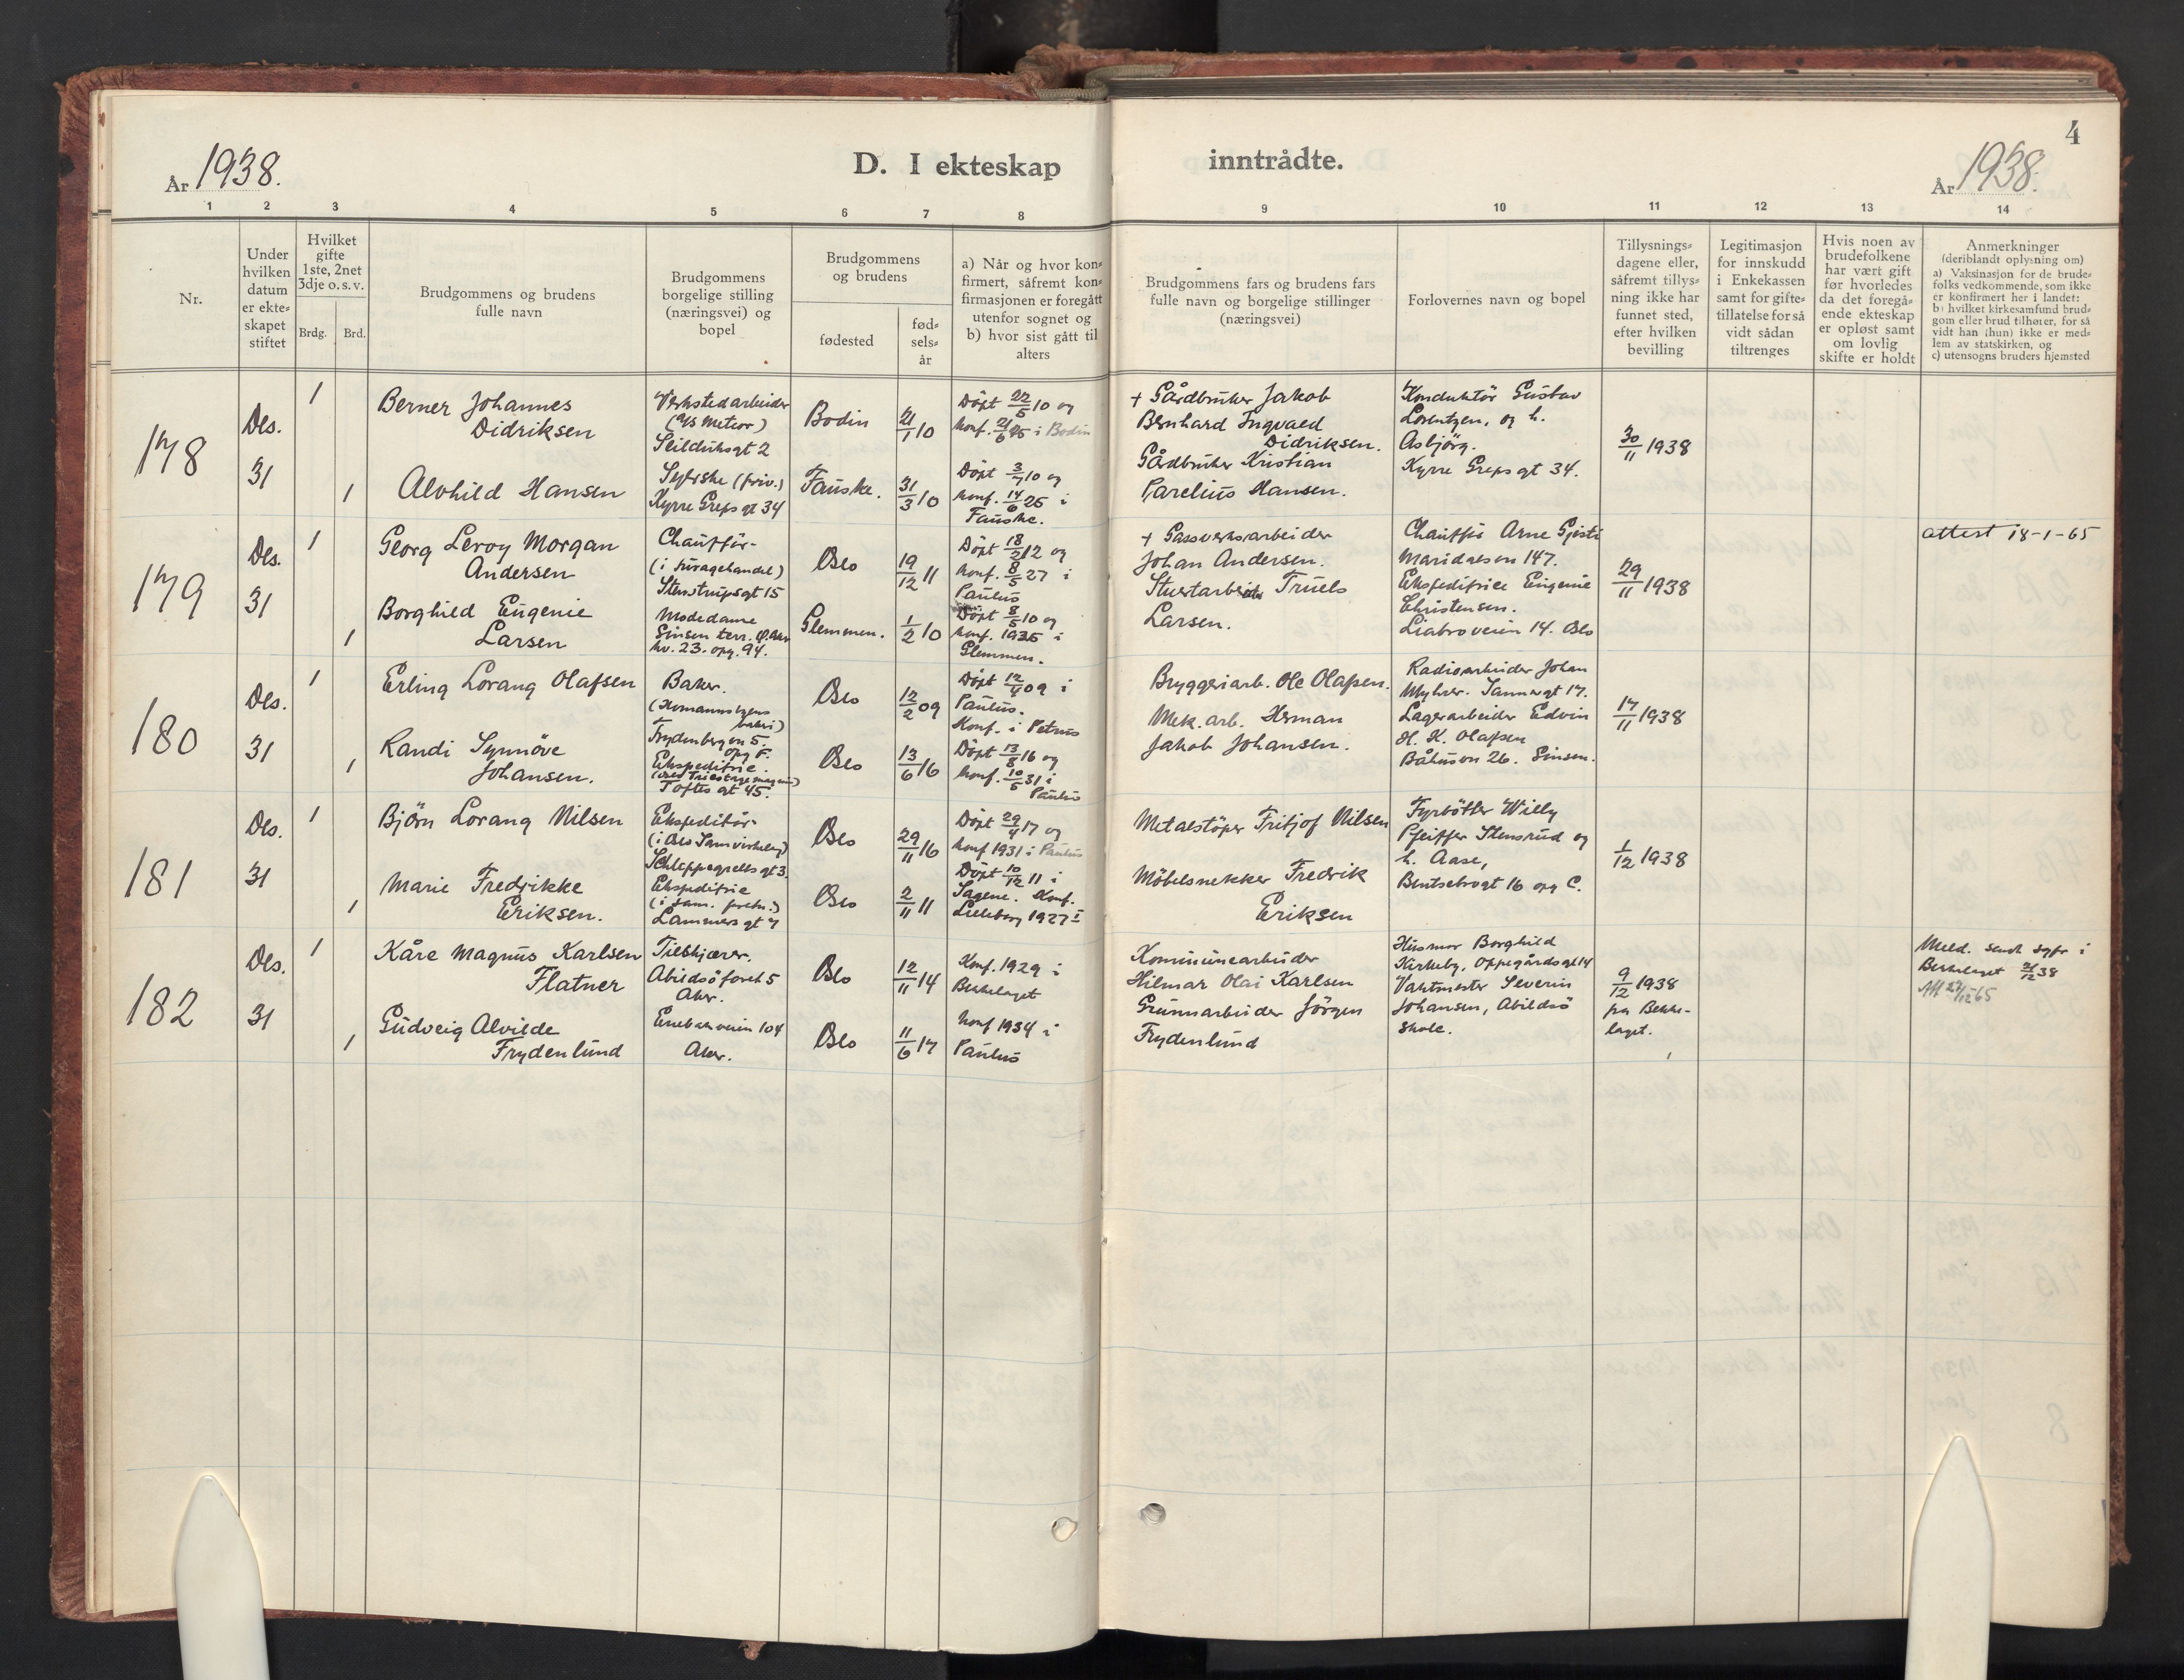 4
År 1938.
D. I ekteskap inntrådte.
År 1938.
1 2 3 4 5 6 7 8 9 10 11 12 13 14
Nr.
Under
hvilken
datum
er ekte=
skapet
stiftet
Hvilket
gifte
1ste, 2net
3dje o. s. v.
Brdg. Brd.
Brudgommens og brudens
fulle navn
Brudgommens
borgelige stilling
(næringsvei) og
bopel
Brudgommens
og brudens
fødested
fød=
sels=
år
a) Når og hvor kon=
firmert, såfremt kon=
firmasjonen er foregått
utenfor sognet og
b) hvor sist gått til
alters
Brudgommens fars og brudens fars
fulle navn og borgelige stillinger
(næringsvei)
Forlovernes navn og bopel
Tillysnings=
dagene eller,
såfremt tillys=
ning ikke har
funnet sted,
efter hvilken
bevilling
Legitimasjon
for innskudd
i Enkekassen
samt for gifte=
tillatelse for så
vidt sådan
tiltrenges
Hvis noen av
brudefolkene
har vært gift
før hvorledes
da det foregå=
ende ekteskap
er opløst samt
om lovlig
skifte er holdt
Anmerkninger
(deriblandt oplysning om)
a) Vaksinasjon for de brude=
folks vedkommende, som ikke
er konfirmert her i landet:
b) hvilket kirkesamfund brud=
gom eller brud tilhører, for så
vidt han (hun) ikke er med=
lem av statskirken, og
c) utensogns bruders hjemsted
178
Des.
31
1
1
Berner Johannes
Didriksen
Alvhild Hansen
Verkstedarbeider
(A/S Meteor)
Seilduksgt 2
Syerske (priv.)
Kyrre Greps gt 34
Bodin
Fauske.
21/1 10
31/3 10
Døpt 22/5 10 og
konf. 21/6 25 i Bodin
Døpt 3/7 10 og
konf. 14/6 25 i
Fauske.
+ Gårdbruker Jakob
Bernhard Ingvald
Didriksen.
Gårdbruker Kristian
Parelius Hansen.
Konduktör Gustav
Lorentzen, og h.
Asbjörg.
Kyrre Greps gt 34.
30/11 1938
179
Des.
31
1
1
Georg Leroy Morgan
Andersen
Borghild Eugenie
Larsen
Chauffür
(i furagehandel)
Stenstrupsgt 15
Modedame
Sinsen terr.
hv. 23. opg. 94.
Oslo
Glemmen.
19/12 11
1/2 10
Döpt 18/2 12 og
konf. 8/5 27 i
Paulus
Döpt 8/5 10 og
konf. 1925 i
Glemmen.
+ Gassverksarbeider
Johan Andersen.
Truels
Larsen.
Chauffür Arne
Maridalsvn 147.
Ekspeditrice Eugenie
Christensen.
Liabroveien 14. Oslo
29/11 1938
attest 18-1-65
180
Des.
31
1
1
Erling Lorang Olafsen
Randi Synnöve
Johansen.
Baker.
(Homannsbyens
bakeri)
Frydenbergvn 5.
opg F.
Ekspeditrice
Toftes gt 45.
Oslo
Oslo
12/2 09
13/6 16
Döpt 12/4 09 i
Paulus.
Konf. i Petrus
Döpt 13/8 16 og
konf. 10/5 31 i
Paulus
Bryggeriarb. Ole Olafsen.
Mek. arb. Herman
Jakob Johansen.
Radioarbeider Johan
Myhrer. Sannergt 17.
Lagerarbeider Edvin
H. K. Olafsen
Båhusvn 26. Sinsen.
17/11 1938
181
Des.
31
1
1
Björn Lorang Nilsen
Marie Fredrikke
Eriksen.
Ekspeditör
(i Oslo Samvirkelag)
Schleppegrells gt 3.
Ekspeditrice
(i sam. forretn.)
Lammers gt 7
Oslo
Oslo
29/11 16
2/11 11
Döpt 29/4 17 og
konf 1931 i Paulus
Döpt 10/12 11 i
Sagene. Konf.
Lilleborg 1927
Metalstöper Fritjof Nilsen
Möbelsnekker Fredrik
Eriksen
Fyrböter Willy
Pfeiffer Stensrud og
h. Aase,
Bentsebrogt 16 opg C.
1/12 1938
182
Des.
31
1
1
Kåre Magnus Karlsen
Flatner
Gudveig Alvilde
Frydenlund
Tilskjærer.
Abildsöfaret 5
Aker.
Enebakveien 104
Aker.
Oslo
Oslo
12/11 14
11/6 17
Konf. 1929 i
Bekkelaget
Konf 1934 i
Paulus
Kommunearbeider
Hilmar Olai Karlsen
Grunnarbeider Jörgen
Frydenlund
Husmor Borghild
Kirkeby, Oppegårdsgt 14
Vaktmester Severin
Johansen, Abildsö
Skole.
9/12 1938
fra Bekke-
laget.
Meld. sendt sgpr i
Bekkelaget 31/12 38
Att 27/12 65